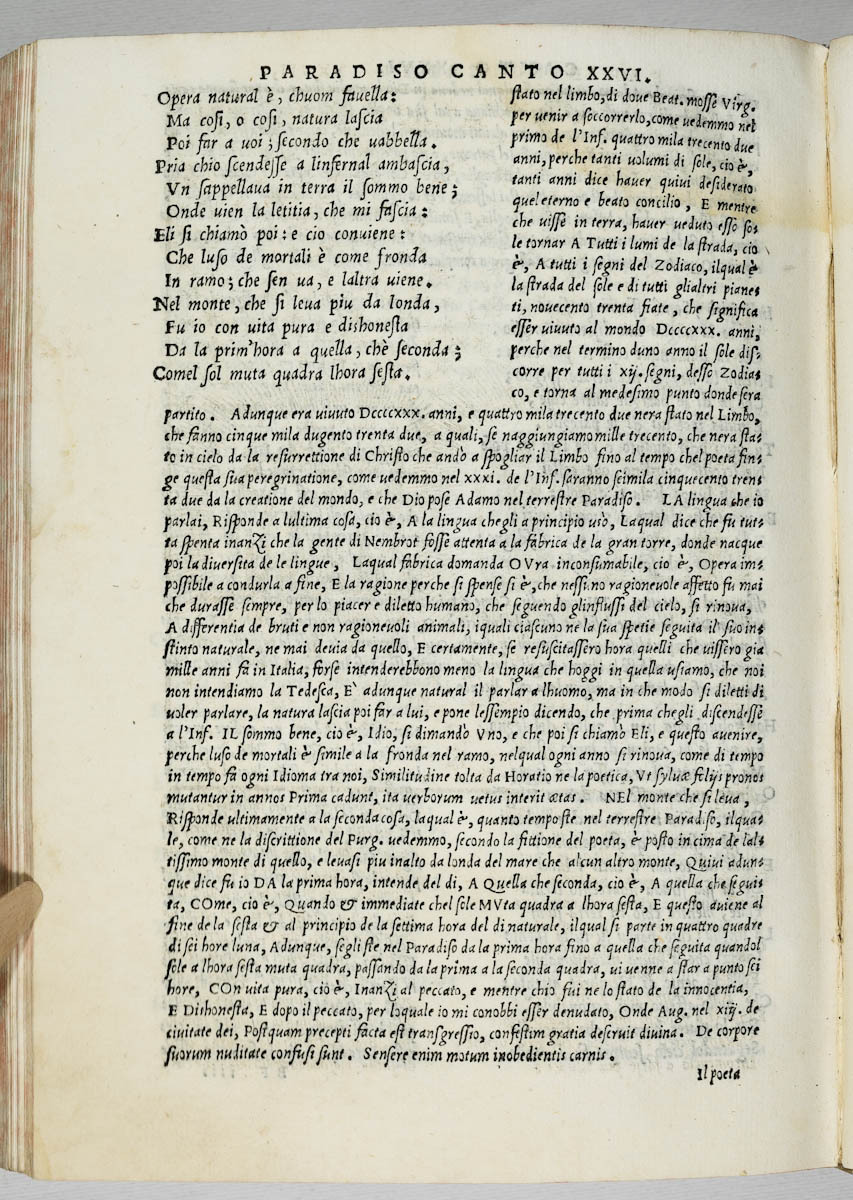 PARADISO CANTO XXVI.
Opera natural è, chuom fauella:
Ma cosi, o cosi, natura lascia
Poi far a uoi; secondo che uabbella.
Pria chio scendesse a linfernal ambascia,
Vn sappellaua in terra il sommo bene;
Onde uien la letitia, che mi fascia:
Eli si chiamò poi: e cio conuiene:
Che luso de mortali è come fronda
In ramo; che sen ua, e laltra uiene.
Nel monte, che si leua piu da londa,
Fu io con uita pura e dishonesta
Da la prim'hora a quella, chè seconda;
Comel sol muta quadra lhora sesta.
stato nel limbo, di doue Beat. mosse Virg.
per uenir a soccorrerlo, come uedemmo nel
primo de l'Inf. quattro mila trecento due
anni, perche tanti uolumi di sole, cio è,
tanti anni dice hauer quiui desiderato
quel eterno e beato concilio, E mentre
che uisse in terra, hauer ueduto esso so-
le tornar A Tutti i lumi de la strada, cio
è, A tutti i segni del Zodiaco, ilqual è
la strada del sole e di tutti glialtri piane-
ti, nouecento trenta fiate, che significa
esser uiuuto al mondo Dccccxxx. anni,
perche nel termino duno anno il sole dis-
corre per tutti i xij. segni, desso Zodia-
co, e torna al medesimo punto donde sera
partito. Adunque era uiuuto Dccccxxx. anni, e quattro mila trecento due nera stato nel Limbo,
che fanno cinque mila dugento trenta due, a quali, se naggiungiamo mille trecento, che nera sta-
to in cielo da la resurrettione di Christo che andò a spogliar il Limbo fino al tempo chel poeta fin-
ge questa sua peregrinatione, come uedemmo nel xxxi. de l'Inf. saranno seimila cinquecento tren-
ta due da la creatione del mondo, e che Dio pose Adamo nel terrestre Paradiso. LA lingua che io
parlai, Risponde a lultima cosa, cio è, A la lingua chegli a principio usò, Laqual dice che fu tut-
ta spenta inanZi che la gente di Nembrot fosse attenta a la fabrica de la gran torre, donde nacque
poi la diuersita de le lingue, Laqual fabrica domanda OVra inconsumabile, cio è, Opera im-
possibile a condurla a fine, E la ragione perche si spense si è, che nessuno ragioneuole affetto fu mai
che durasse sempre, per lo piacer e diletto humano, che seguendo glinflussi del cielo, si rinoua,
A differentia de bruti e non ragioneuoli animali, iquali ciascuno ne la sua spetie seguita il suo in-
stinto naturale, ne mai deuia da quello, E certamente, se resuscitassero hora quelli che uissero gia
mille anni fa in Italia, forse intenderebbono meno la lingua che hoggi in quella usiamo, che noi
non intendiamo la Tedesca, E' adunque natural il parlar a lhuomo, ma in che modo si diletti di
uoler parlare, la natura lascia poi far a lui, e pone lessempio dicendo, che prima chegli discendesse
a l'Inf. IL sommo bene, cio è, Idio, si dimandò Vno, e che poi si chiamò Eli, e questo auenire,
perche luso de mortali è simile a la fronda nel ramo, nelqual ogni anno si rinoua, come di tempo
in tempo fa ogni Idioma tra noi, Similitudine tolta da Horatio ne la poetica, Vt syluæ folijs pronos
mutantur in annos Prima cadunt, ita uerborum uetus interit ætas. NEl monte che si leua,
Risponde ultimamente a la seconda cosa, laqual è, quanto tempo ste nel terrestre Paradiso, ilqua-
le, come ne la discrittione del Purg. uedemmo, secondo la fittione del poeta, è posto in cima de lal-
tissimo monte di quello, e leuasi piu in alto da londa del mare che alcun altro monte, Quiui adun-
que dice fu io DA la prima hora, intende del di, A Quella che seconda, cio è, A quella che segui-
ta, COme, cio è, Quando & immediate chel sole MVta quadra a lhora sesta, E questo auiene al
fine de la sesta & al principio de la settima hora del di naturale, ilqual si parte in quattro quadre
di sei hore luna, Adunque, segli ste nel Paradiso da la prima hora fino a quella che seguita quandol
sole a lhora sesta muta quadra, passando da la prima a la seconda quadra, ui uenne a star a punto sei
hore, COn uita pura, cio è, InanZi al peccato, e mentre chio fui ne lo stato de la innocentia,
E Dishonesta, E dopo il peccato, per loquale io mi conobbi esser denudato, Onde Aug. nel xiij. de
ciuitate dei, Postquam precepti facta est transgressio, confestim gratia deseruit diuina. De corpore
suorum nuditate confusi sunt. Sensere enim motum inobedientis carnis.
Il poeta